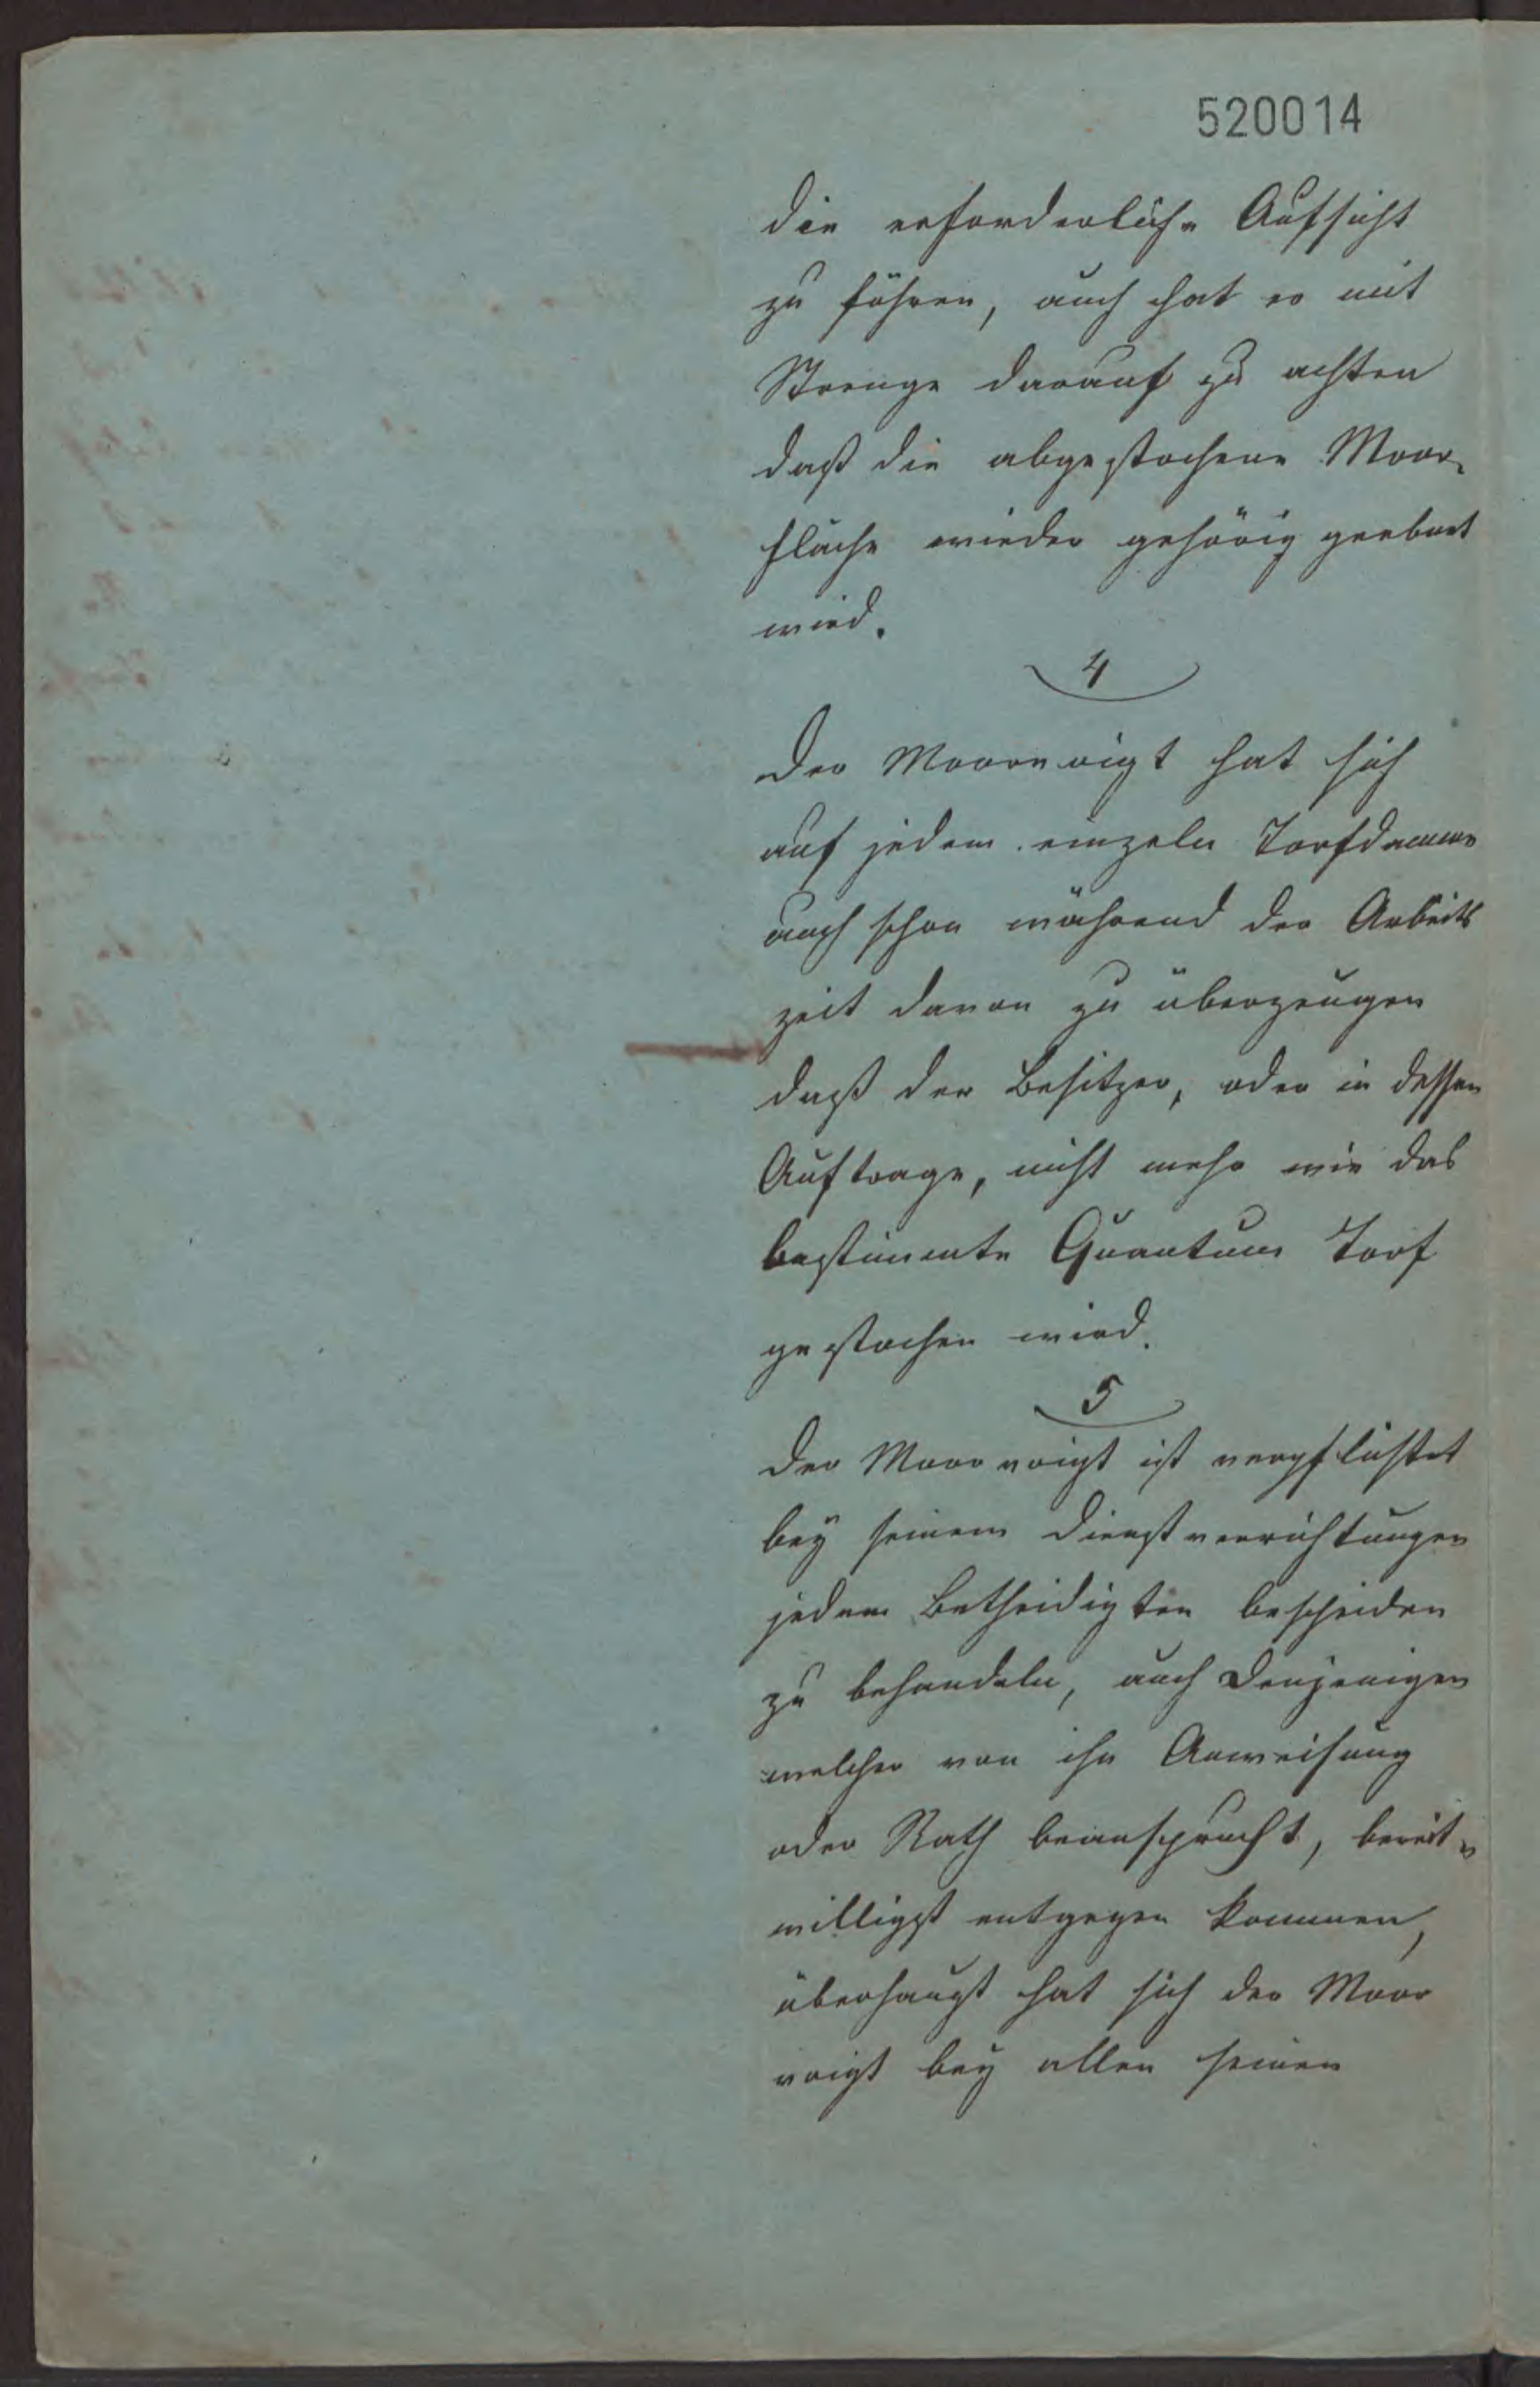 520014
die erforderliche Aufsicht
zu führen, auch hat er mit
Strenge darauf zu achten
daß die abgestochene Moor-
fläche wieder gehörig geebnet
wird.
4
Der Moorvoigt hat sich
auf jedem einzeln Torfdamme
auch schon während der Arbeits
zeit davon zu überzeugen
daß der Besitzer, oder in dessen
Auftrage, nicht mehr wie das
bestimmte Quantum Torf
gestochen wird.
5
Der Moorvoigt ist verpflichtet
bey seinem Dienstverrichtungen
jedem Betheidigten bescheiden
zu behandeln, auch denjenigen
welcher von ihn Anweisung
oder Rath beansprucht, bereit-
willigst entgegen kommen,
überhaupt hat sich der Moor
voigt bey allen seinen